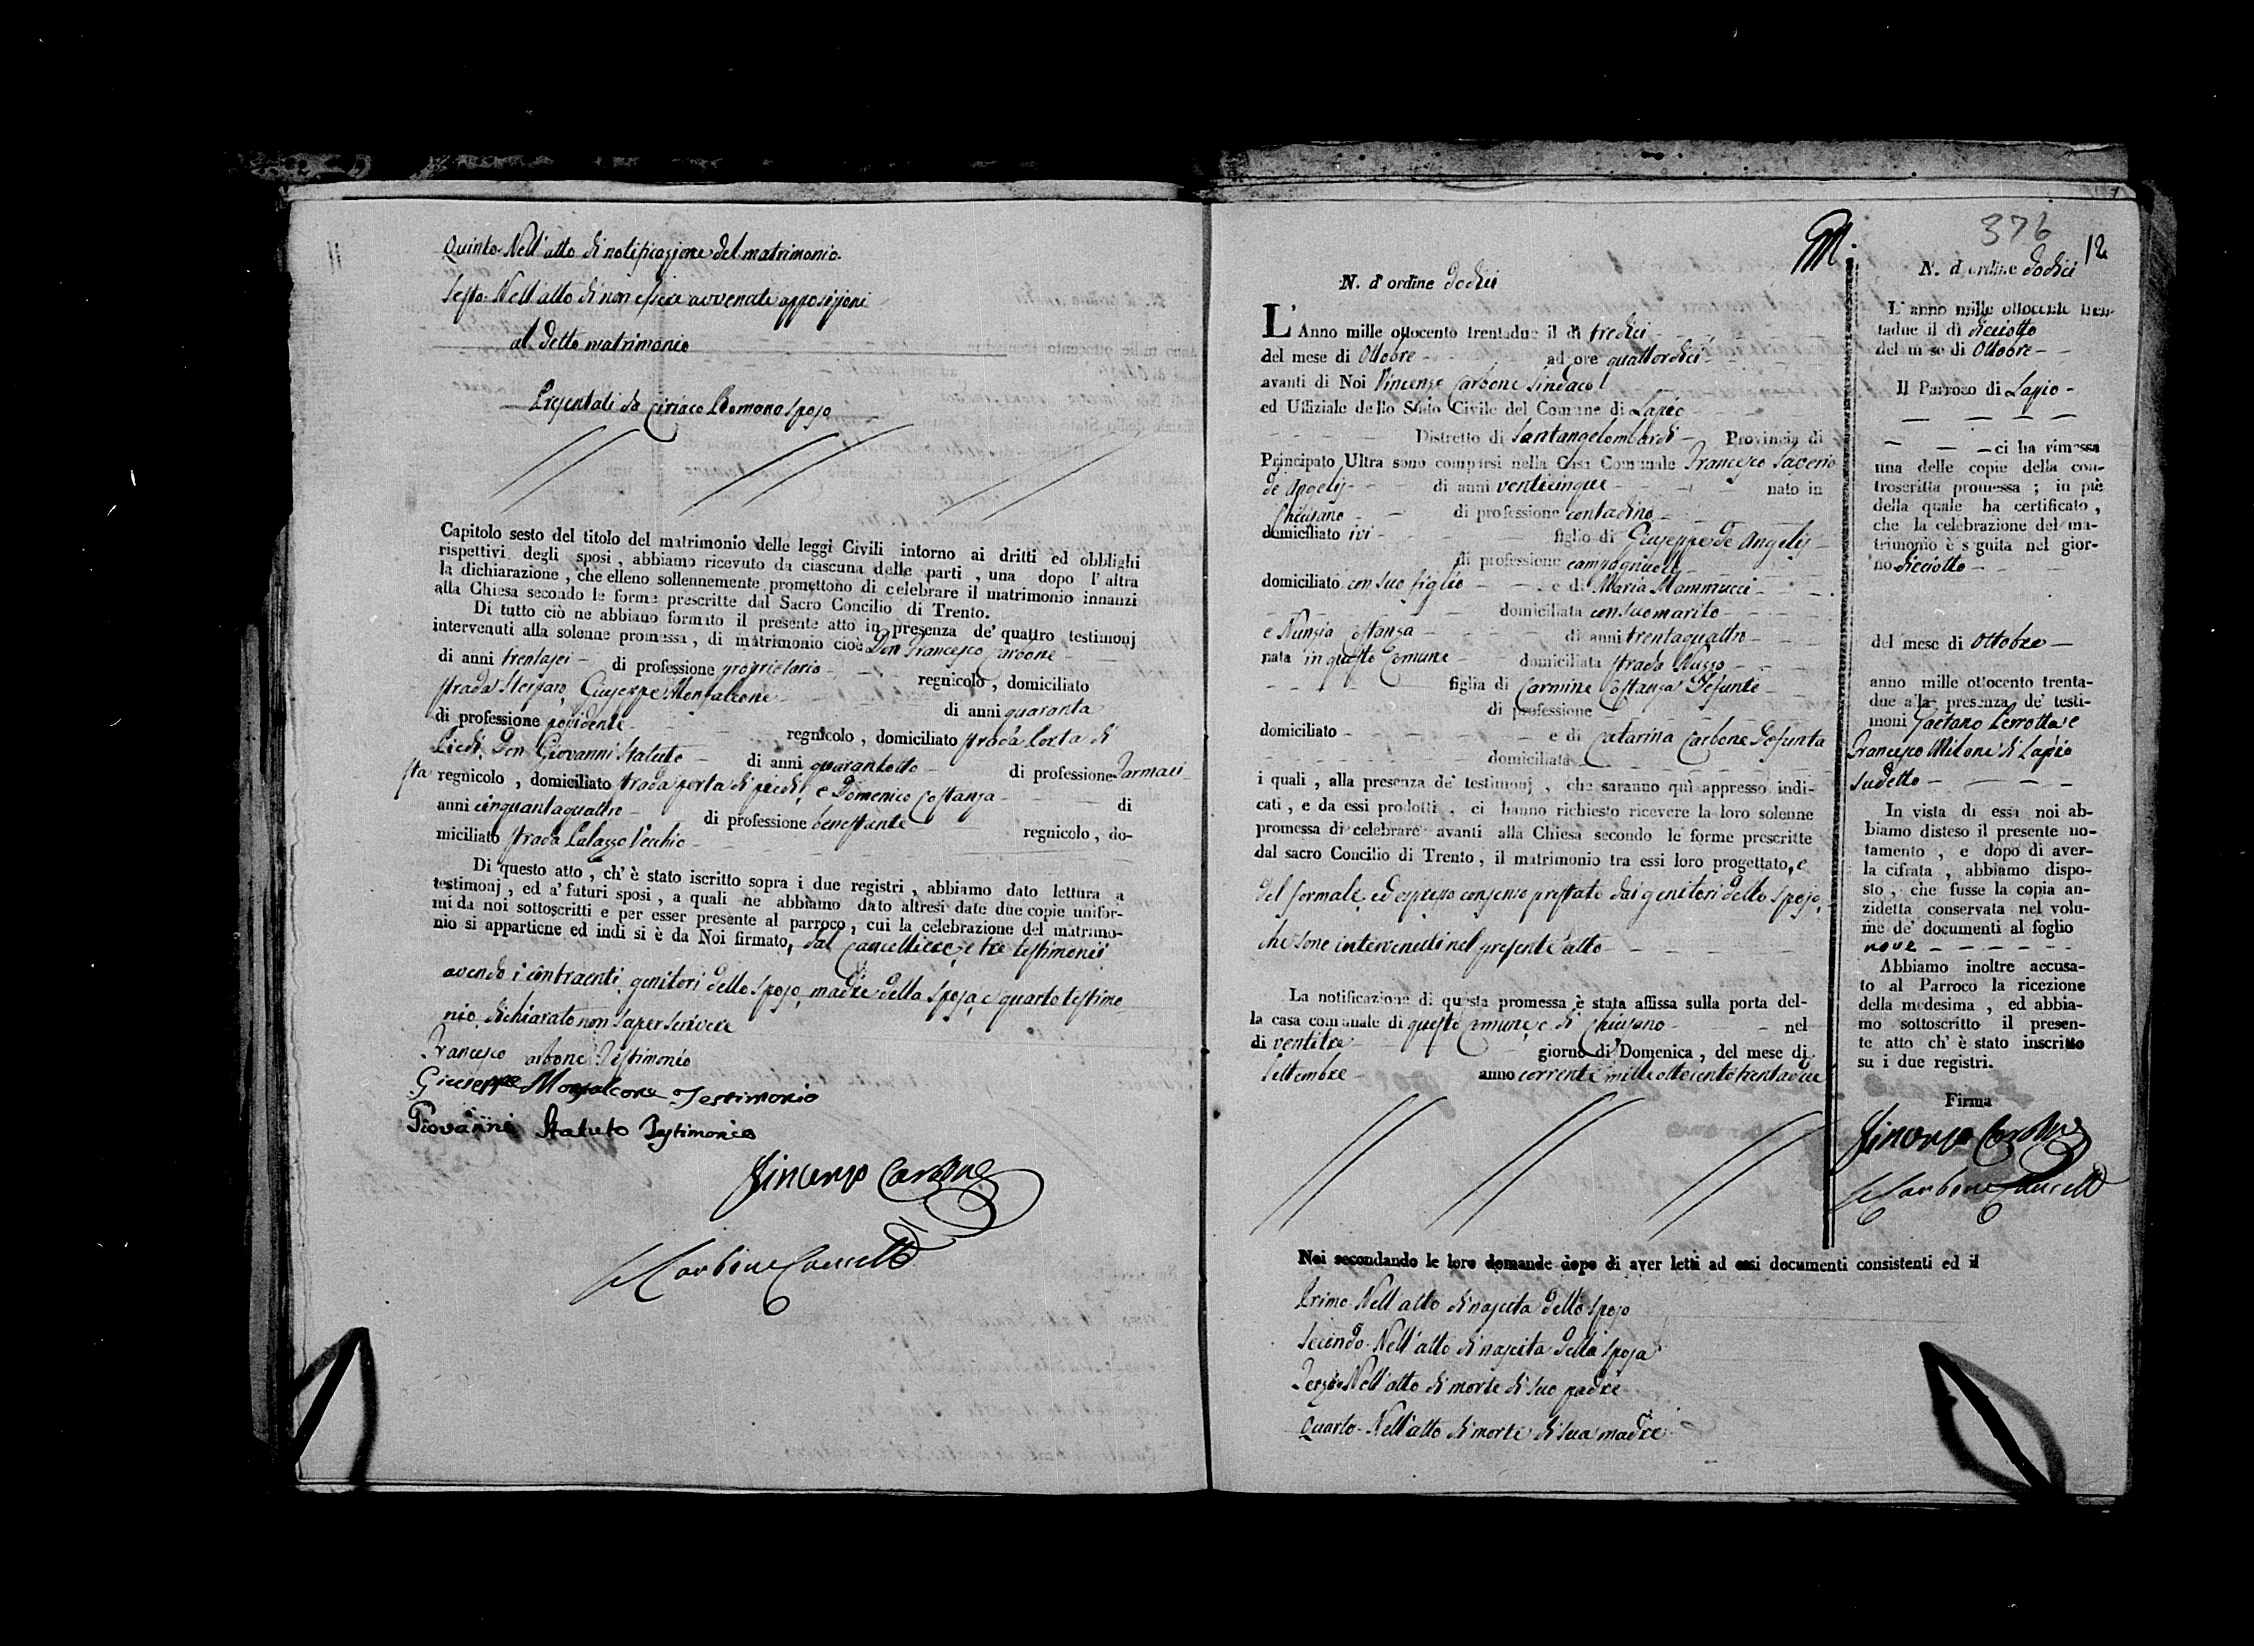 11
Quinto. Nell'atto di notificazione del matrimonio.
Sesto. Nell'atto di non essere avvenute opposizioni
al detto matrimonio
Presentati da Ciriaco Romano sposo
Capitolo sesto del titolo del matrimonio delle leggi Civili intorno ai dritti ed obblighi
rispettivi degli sposi, abbiamo ricevuto da ciascuna delle parti, una dopo l'altra
la dichiarazione, che elleno sollennemente promettono di celebrare il matrimonio innanzi
alla Chiesa secondo le forme prescritte dal Sacro Concilio di Trento.
Di tutto ciò ne abbiamo formato il presente atto in presenza de' quattro testimonj
intervenuti alla solenne promessa, di matrimonio cioè Don Francesco Carbone
di anni trentasei di professione proprietario regnicolo, domiciliato
strada Giuseppe Monfalcone di anni quaranta
di professione possidente regnicolo, domiciliato strada Porta di
Piedi, Don Giovanni Statuto di anni quarantotto di professione Farmaci
sta regnicolo, domiciliato strada porta di piedi, e Domenico Costanza di
anni cinquantaquattro di professione benestante regnicolo, do-
miciliato strada Palazzo Vecchio
Di questo atto, ch' è stato iscritto sopra i due registri, abbiamo dato lettura a
testimonj, ed a' futuri sposi, a quali ne abbiamo dato altresì date due copie unifor-
mi da noi sottoscritti e per esser presente al parroco, cui la celebrazione del matrimo-
nio si appartiene ed indi si è da Noi firmato, dal Cancelliere, e tre testimonii
avendo i contraenti, genitori dello sposo, madre della sposa, e quarto testimo
nio, dichiarato non saper scrivere
Francesco Carbone Testimonio
Giuseppe Monfalcone Testimonio
Giovanni Statuto Testimonio
Vincenzo Carbone
Carbone Cancell
376
12
N. d'ordine dodici
L'Anno mille ottocento trentadue il dì tredici
del mese di Ottobre ad ore quattordici
avanti di Noi Vincenzo Carbone Sindaco
ed Uffiziale dello Stato Civile del Comune di Lapio
Distretto di Santangelombardi Provincia di
Principato Ultra sono comparsi nella Casa Comunale Francesco Saverio
de Angelis di anni venticinque nato in
Chiusano di professione contadino
domiciliato ivi figlio di Giuseppe de Angelis
di professione campagnuolo
domiciliato con suo figlio e di Maria Mammucci
domiciliata con suo marito
e Nunzia Costanza di anni trentaquattro
nata in questo Comune domiciliata strada Russo
figlia di Carmine Costanza Defunto
di professione
domiciliato e di Catarina Carbone Defunta
domiciliata
i quali, alla presenza de' testimonj, che saranno quì appresso indi-
cati, e da essi prodotti, ci hanno richiesto ricevere la loro solenne
promessa di celebrare avanti alla Chiesa secondo le forme prescritte
dal sacro Concilio di Trento, il matrimonio tra essi loro progettato, e
del formale, ed espresso consenso prestato dai genitori dello sposo,
che sono intervenuti nel presente atto
La notificazione di questa promessa è stata affissa sulla porta del-
la casa comunale di questo Comune, e di Chiusano nel
di ventitre giorno di Domenica, del mese di
Settembre anno corrente mille ottocento trentadue
Noi secondando le loro domande dopo di aver letti ad essi documenti consistenti ed il
Primo. Nell'atto di nascita dello sposo
Secondo. Nell'atto di nascita della sposa
Terzo. Nell'atto di morte di suo padre
Quarto. Nell'atto di morte di sua madre
N. d'ordine dodici
L'anno mille ottocento tren-
tadue il dì diciotto
del mese di Ottobre
Il Parroco di Lapio
ci ha rimessa
una delle copie della con-
troscritta promessa; in piè
della quale ha certificato,
che la celebrazione del ma-
trimonio è seguita nel gior-
no diciotto
del mese di Ottobre
anno mille ottocento trenta-
due alla presenza de' testi-
moni Gaetano Perrotta e
Francesco Milone di Lapio
sudetto
In vista di essa noi ab-
biamo disteso il presente no-
tamento, e dopo di aver-
la cifrata, abbiamo dispo-
sto, che fusse la copia an-
zidetta conservata nel volu-
me de' documenti al foglio
nove
Abbiamo inoltre accusa-
to al Parroco la ricezione
della medesima, ed abbia-
mo sottoscritto il presen-
te atto ch' è stato inscritto
su i due registri.
Firma
Vincenzo Carbone
Carbone Cancell